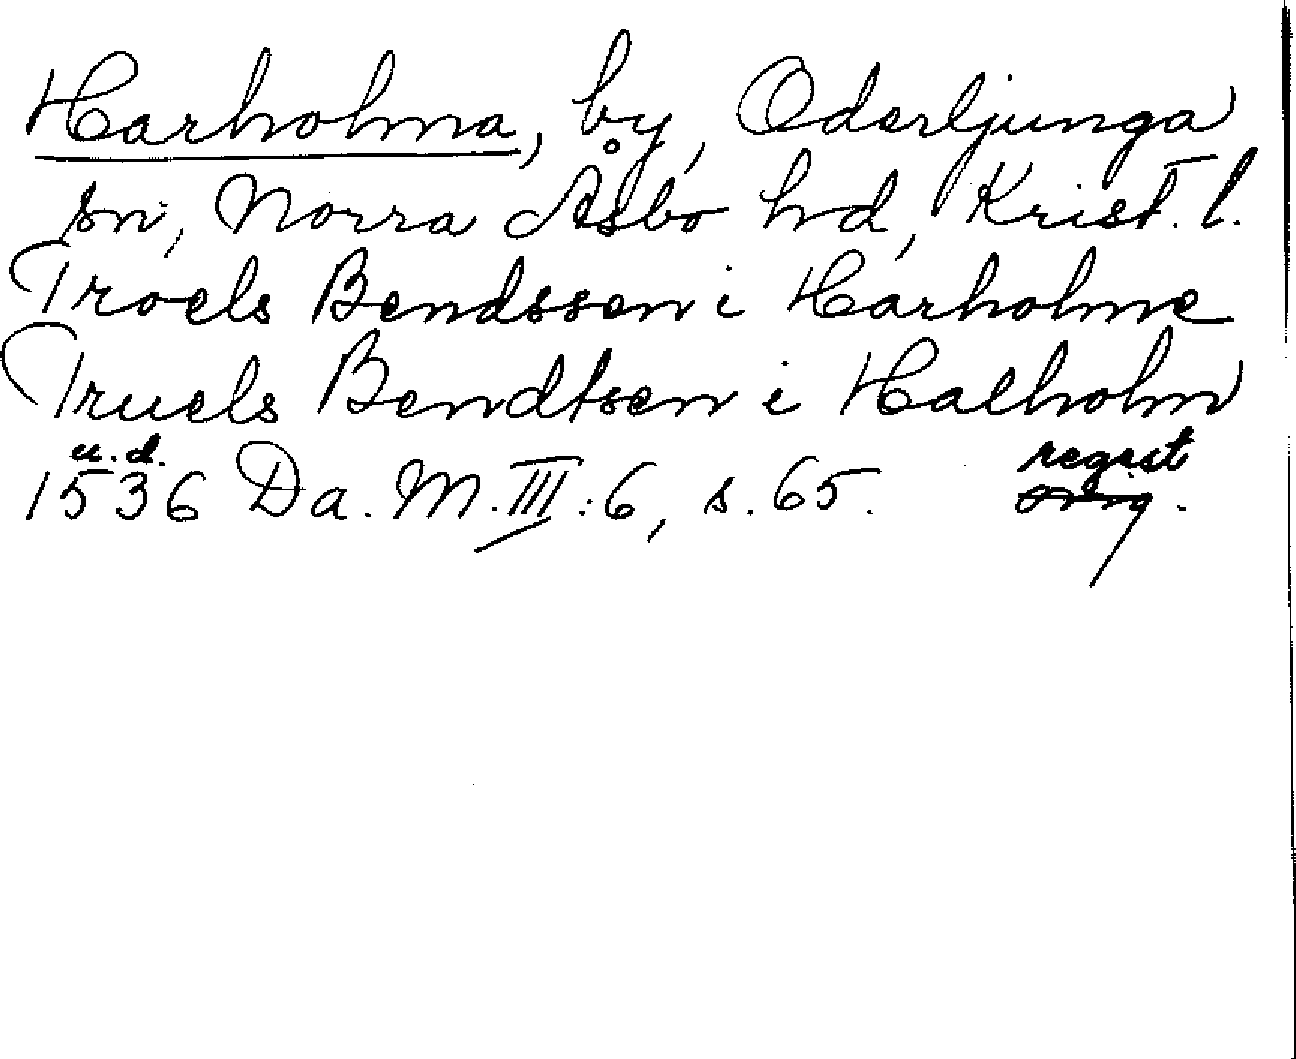 Harholma, by, Oderljunga
sn, Norra Åsbo hd, Krist. l.
Troels Bendssen i Harholme
Truels Bendtsen i Halholm
u. d.
1536 Da. M. III:6, s. 65. regest
orig.